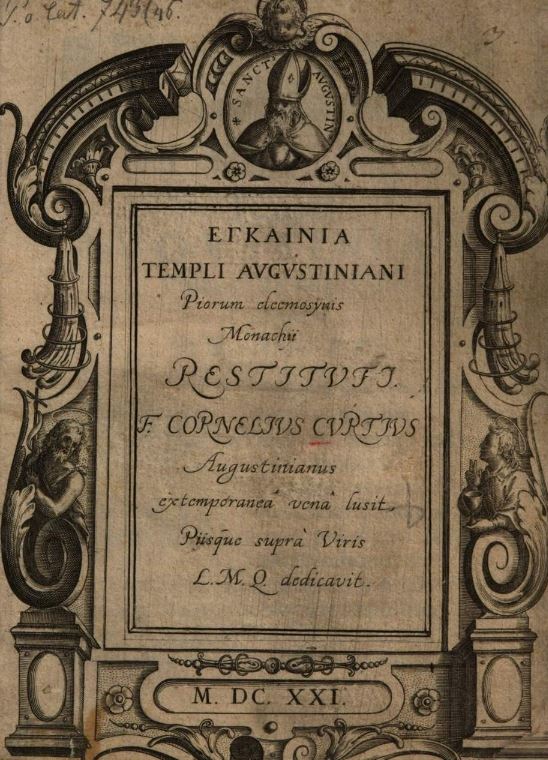 P. o lat. 745/46.
3
✶ SANCT AVGVSTIN
ΕΓΚΑΙΝΙΑ
TEMPLI AVGVSTINIANI
Piorum eleemosynis
Monachij
RESTITVTI.
F. CORNELIVS CVRTIVS
Augustinianus
extemporaneâ venâ lusit,
Piisque suprà Viris
L. M. Q. dedicavit.
M. DC. XXI.